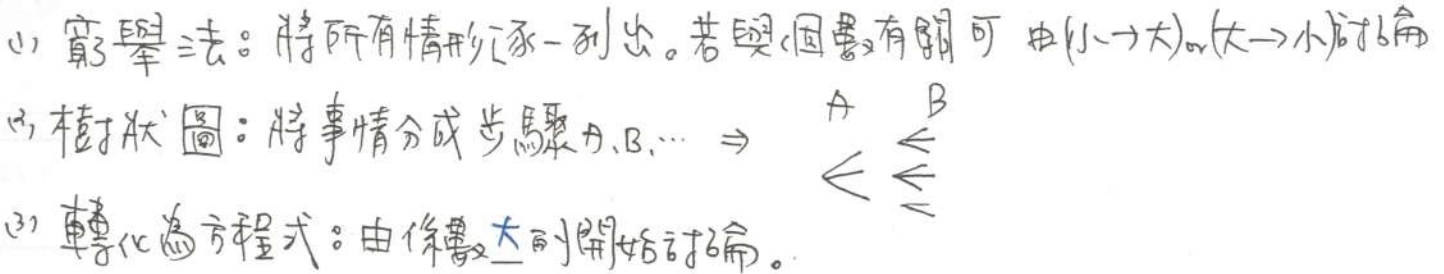 (1) 窮舉法：將所有情形逐一列出。若與個數有關可 由(小→大)or(大→小)討論
(2) 樹狀圖：將事情分成步驟A、B、… ⇒ A B
(3) 轉化為方程式：由係數大的開始討論。